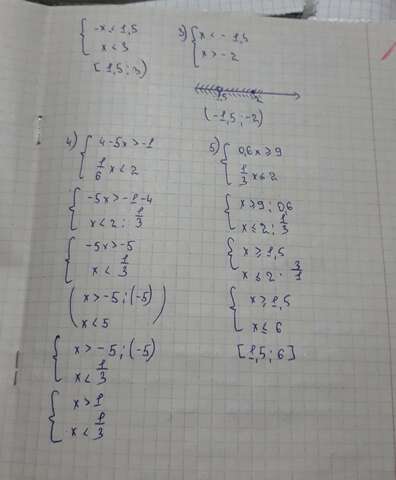 { -x ≤ 1,5
x < 3
[1,5 ; 3)
3) { x < -1,5
x > -2
(-1,5 ; -2)
4) { 4-5x > -1
1/6 x < 2
{ -5x > -1-4
x < 2 : 1/3
{ -5x > -5
x < 1/3
( x > -5 : (-5)
x < 5 )
{ x > -5 : (-5)
x < 1/3
{ x > 1
x < 1/3
5) { 0,6x ≥ 9
1/3 x ≤ 2
{ x ≥ 9 : 0,6
x ≤ 2 : 1/3
{ x ≥ 1,5
x ≤ 2 · 3/1
{ x ≥ 1,5
x ≤ 6
[1,5 ; 6]